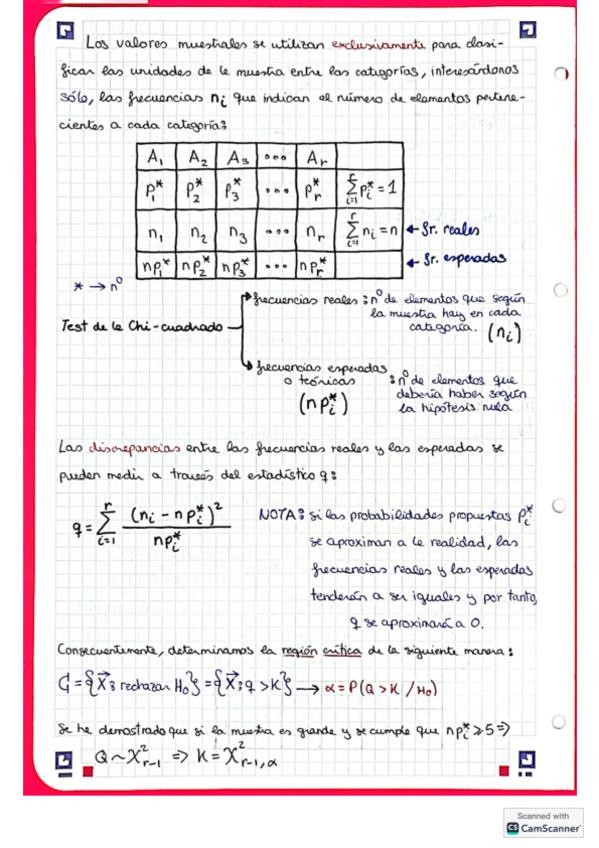 Los valores muestrales se utilizan exclusivamente para clasi-
ficar las unidades de la muestra entre las categorías, interesándonos
sólo, las frecuencias nᵢ que indican el número de elementos pertene-
cientes a cada categoría:
A₁ A₂ A₃ ... Aᵣ
p₁* p₂* p₃* ... pᵣ* ∑ᵢ₌₁ʳ pᵢ* = 1
n₁ n₂ n₃ ... nᵣ ∑ᵢ₌₁ʳ nᵢ = n ← fr. reales
np₁* np₂* np₃* ... npᵣ* ← fr. esperadas
* → nº
Test de la Chi-cuadrado
frecuencias reales: nº de elementos que según
la muestra hay en cada
categoría. (nᵢ)
frecuencias esperadas
o teóricas
(npᵢ*)
: nº de elementos que
debería haber según
la hipótesis nula
Las discrepancias entre las frecuencias reales y las esperadas se
pueden medir a través del estadístico q:
q = ∑ᵢ₌₁ʳ (nᵢ - npᵢ*)² / npᵢ*
NOTA: si las probabilidades propuestas pᵢ*
se aproximan a la realidad, las
frecuencias reales y las esperadas
tenderán a ser iguales y por tanto,
q se aproximará a 0.
Consecuentemente, determinamos la región crítica de la siguiente manera:
C = {X⃗: rechazar H₀} = {X⃗: q > K} → α = P(Q > K / H₀)
Se ha demostrado que si la muestra es grande y se cumple que npᵢ* ≥ 5 ⇒
Q ~ χ²ᵣ₋₁ ⇒ K = χ²ᵣ₋₁,α
Scanned with
CS CamScanner